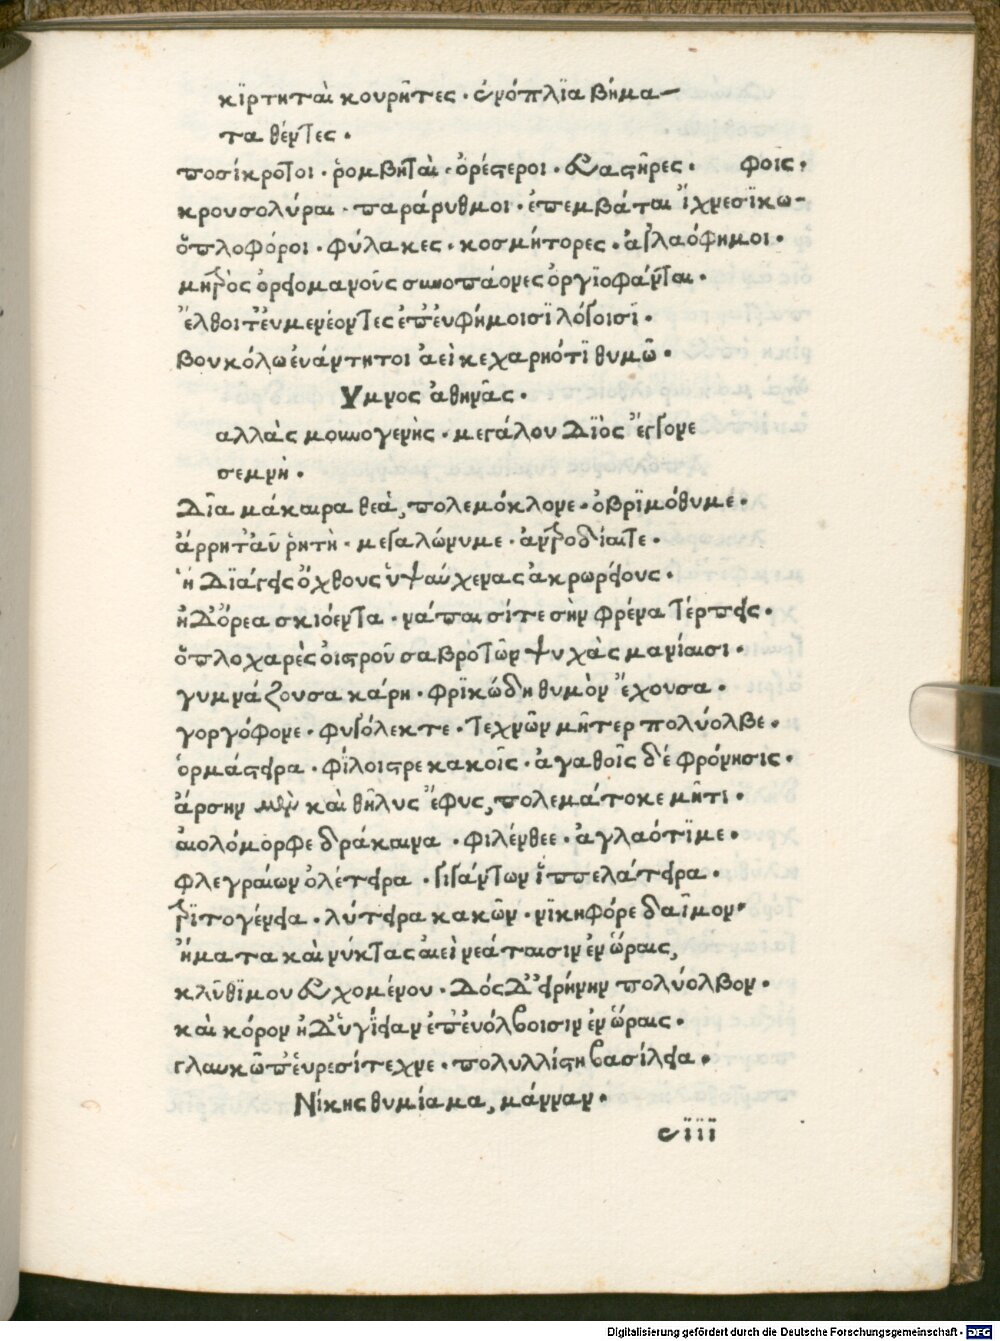 κϊρτηταὶ κουρῆτες · ἐνόπλϊα βήμα-
τα θέντες ·
ποσίκροτοι · ῥομβηταὶ · ὀρέστεροι · ευαστῆρες · φοις ·
κρουσολύραι · παράρυθμοι · ἐπεμβάται ἴχνεσϊκω-
ὅπλοφόροι · φύλακες · κοσμήτορες · ἀγλαόφημοι ·
μητρὸς ὀρειομανοῦς συνοπάονες ὀργϊοφάνται ·
ἔλθοιτ' ἐυμενέοντες ἐπ' ἐυφήμοισϊ λόγοισϊ ·
βουκόλω ἐνάντητοι ἀεὶ κεχαρηότϊ θυμῶ ·
Υμνος ἀθηνᾶς ·
αλλὰς μουνογενὴς · μεγάλου Διὸς ἔγγονε
σεμνὴ ·
Δῖα μάκαιρα θεὰ, πολεμόκλονε · ὀβρϊμόθυμε ·
ἄρρητ' αῦ ῥητὴ · μεγαλώνυμε · ἀντροδίαιτε ·
ἡ Διάγεις ὄχθους ὑψαύχενας ἀκρωρείους ·
ἠδ' ὄρεα σκιόεντα · νάπαισί τε σὴν φρένα τέρπεις ·
ὅπλοχαρὲς οἰστροῦσα βροτῶν ψυχὰς μανίαισι ·
γυμνάζουσα κάρη · φρϊκώδη θυμὸν ἔχουσα ·
γοργόφονε · φυγόλεκτε · τεχνῶν μῆτερ πολύολβε ·
ὁρμάστειρα · φϊλοιστρε κακοῖς · ἀγαθοῖς δέ φρόνησις ·
ἄρσην μὲν καὶ θῆλυς ἔφυς, πολεμάτοκε μῆτι ·
αἰολόμορφε δράκαινα · φιλένθεε · ἀγλαότϊμε ·
φλεγραίων ὀλέτειρα · γιγάντων ἵππελάτειρα ·
τρϊτογένεια · λύτειρα κακῶν · νϊκηφόρε δαῖμον·
ἤματα καὶ νύκτας αἰεὶ νεάταισιν ἐν ὥραις,
κλῦθϊ μου ευχομένου · Δὸς Δ' εἰρήνην πολύολβον ·
καὶ κόρον ἠδ' ὑγίειαν ἐπ' ἐυόλβοισιν ἐν ὥραις ·
γλαυκῶπ' ἑυρεσίτεχνε · πολυλλίστη βασίλεια ·
Νίκης θυμίαμα, μάνναν ·
cϊϊϊ
Digitalisierung gefördert durch die Deutsche Forschungsgemeinschaft - DFG